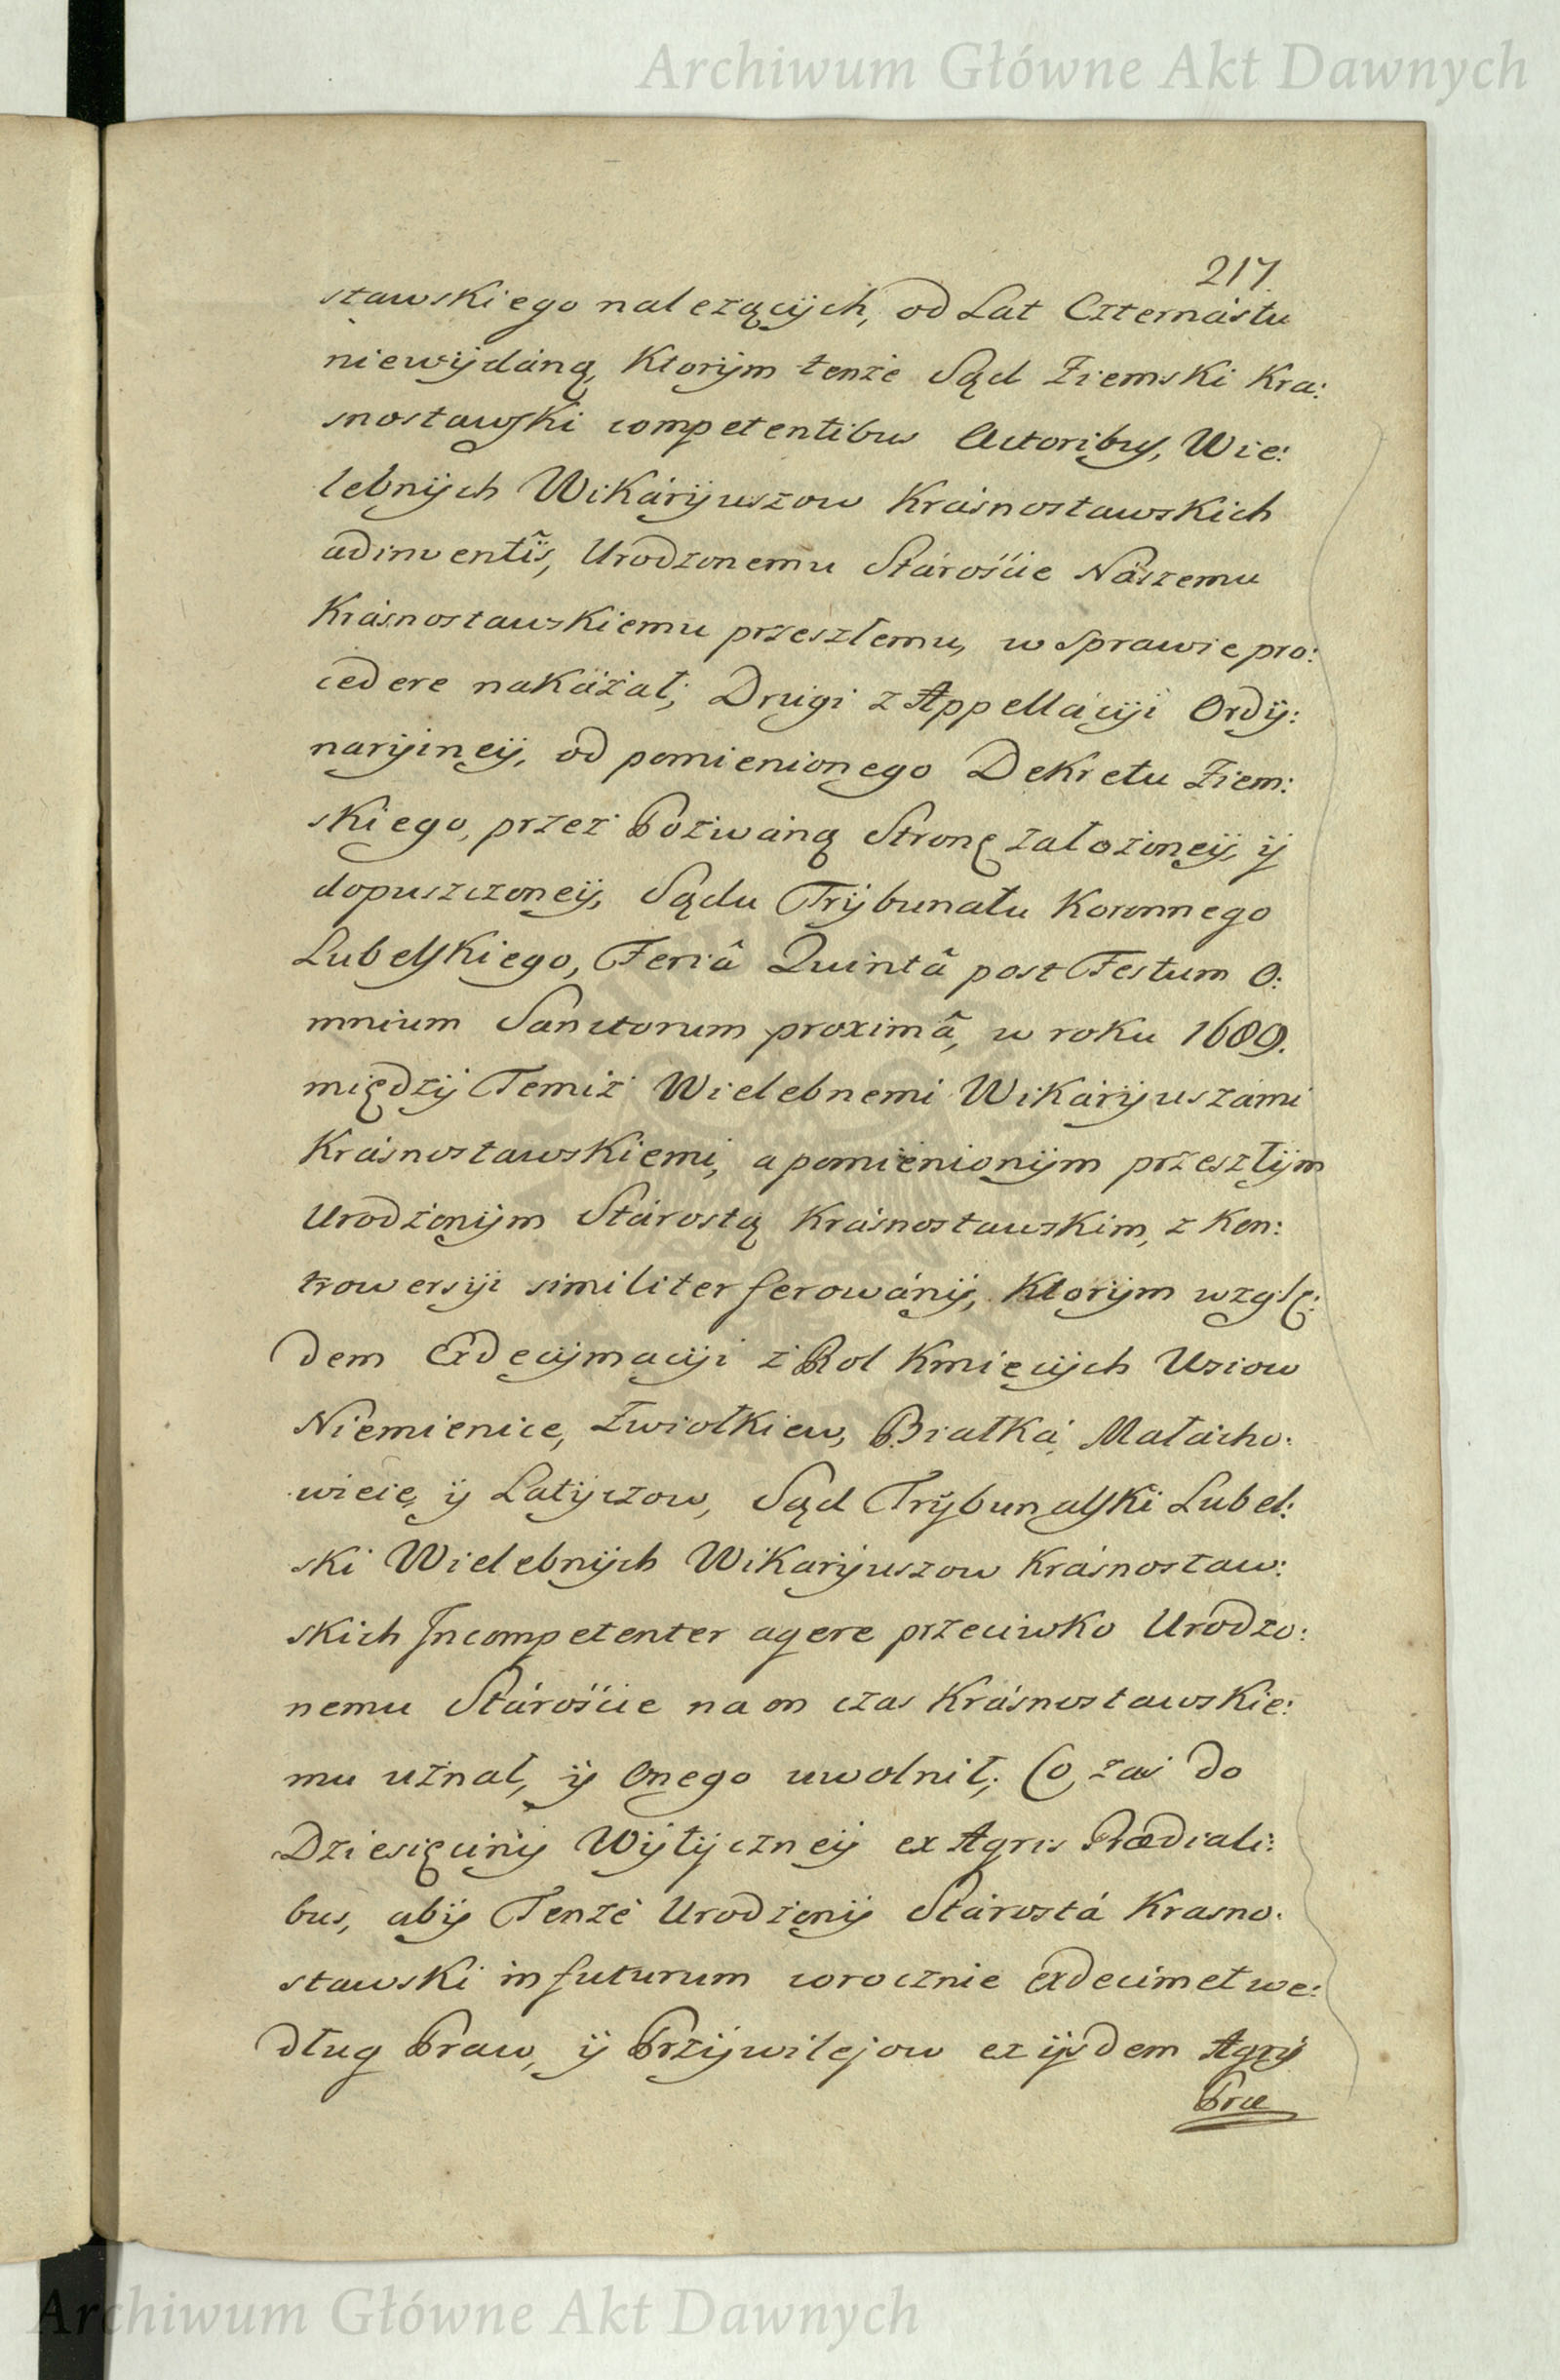 Archiwum Główne Akt Dawnych
217.
stawskiego nalezących, od Lat Czternástu
niewydáną, Ktorym tenże Sąd Ziemski Kra:
snostawski competentibus Actoribus, Wie:
lebnych Wikáryuszow Krásnostawskich
adinventis, Urodzonemu Stárośćie Nászemu
Krásnostawskiemu przeszłemu, w Sprawie pro:
cedere nakázał; Drugi z Appellácyi Ordy:
naryiney, od pomienionego Dekretu Ziem:
skiego, przez Pozwáną Stronę załozoney, y
dopuszczoney, Sądu Trybunału Koronnego
Lubelskiego, Feriâ Quintâ post Festum O:
mnium Sanctorum proximâ, w roku 1689.
między Temiż Wielebnemi Wikáryuszámi
Krásnostawskiemi, a pomienionym przeszłym
Urodzonym Stárostą Krásnostawskim, z Kon:
trowersyi similiter ferowány, Ktorym wzglę:
dem Exdecymacyi z Rol Kmięcych Wsiow
Niemienice, Zwiołkiew, Białka, Małácho:
wiece, y Latyczow, Sąd Trybunalski Lubel:
ski Wielebnych Wikaryuszow Krásnostaw:
skich Incompetenter agere przeciwko Urodzo:
nemu Stárośćie na on czas Krásnostawskie:
mu uznał, y Onego uwolnił; Co zaś do
Dziesięciny Wytyczney ex Agris Prædiali:
bus, aby Tenże Urodzony Stárostá Krasno:
stawski in futurum corocznie exdecimet we:
dług Praw, y Przywilejow ex iisdem Agris
Præ
Archiwum Główne Akt Dawnych